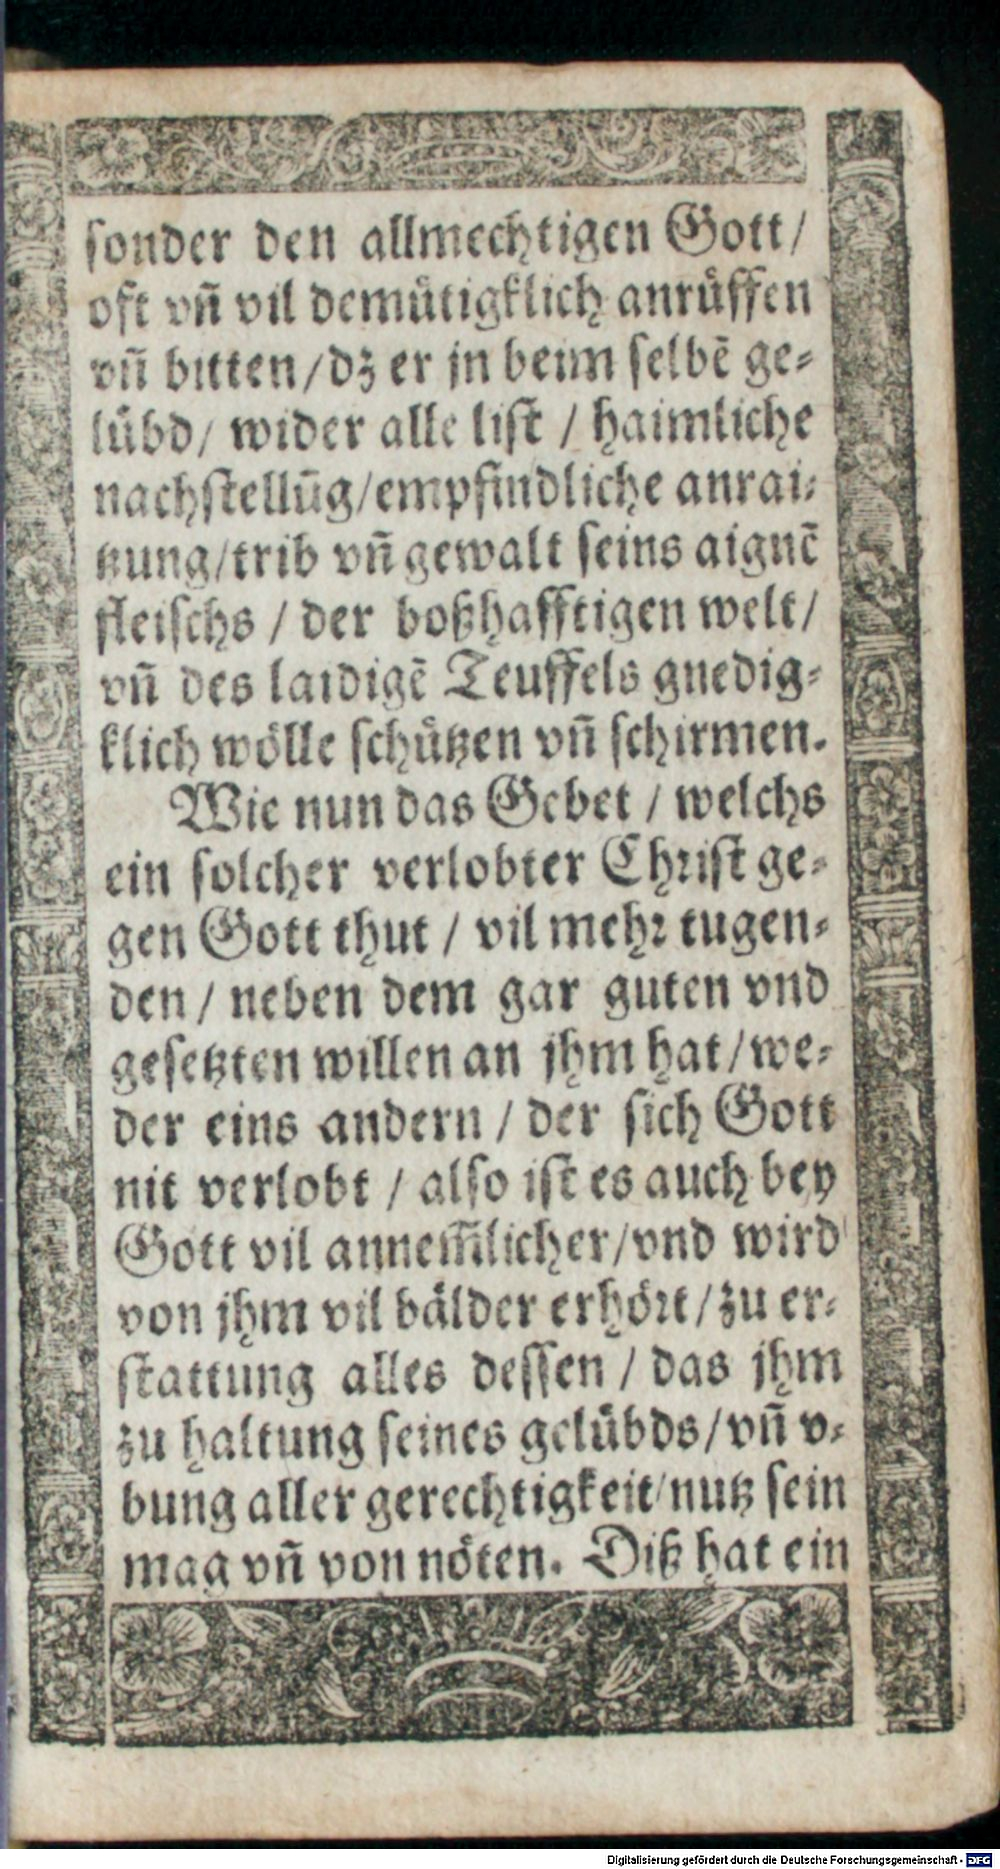 sonder den allmechtigen Gott/
oft vn̄ vil demütigklich anrüffen
vn̄ bitten/dz er jn beim selbē ge⸗
lübd/ wider alle list / haimliche
nachstellūg/empfindliche anrai⸗
tzung/trib vn̄ gewalt seins aignē
fleischs / der boßhafftigen welt/
vn̄ des laidigē Teuffels gnedig⸗
klich wölle schützen vn̄ schirmen.
Wie nun das Gebet / welchs
ein solcher verlobter Christ ge⸗
gen Gott thut / vil mehr tugen⸗
den / neben dem gar guten vnd
gesetzten willen an jhm hat/we⸗
der eins andern / der sich Gott
nit verlobt / also ist es auch bey
Gott vil annem̄licher/vnd wird
von jhm vil bälder erhört/zu er⸗
stattung alles dessen / das jhm
zu haltung seines gelübds/vn̄ v⸗
bung aller gerechtigkeit/nutz sein
mag vn̄ von nöten. Diß hat ein
Digitalisierung gefördert durch die Deutsche Forschungsgemeinschaft - DFG